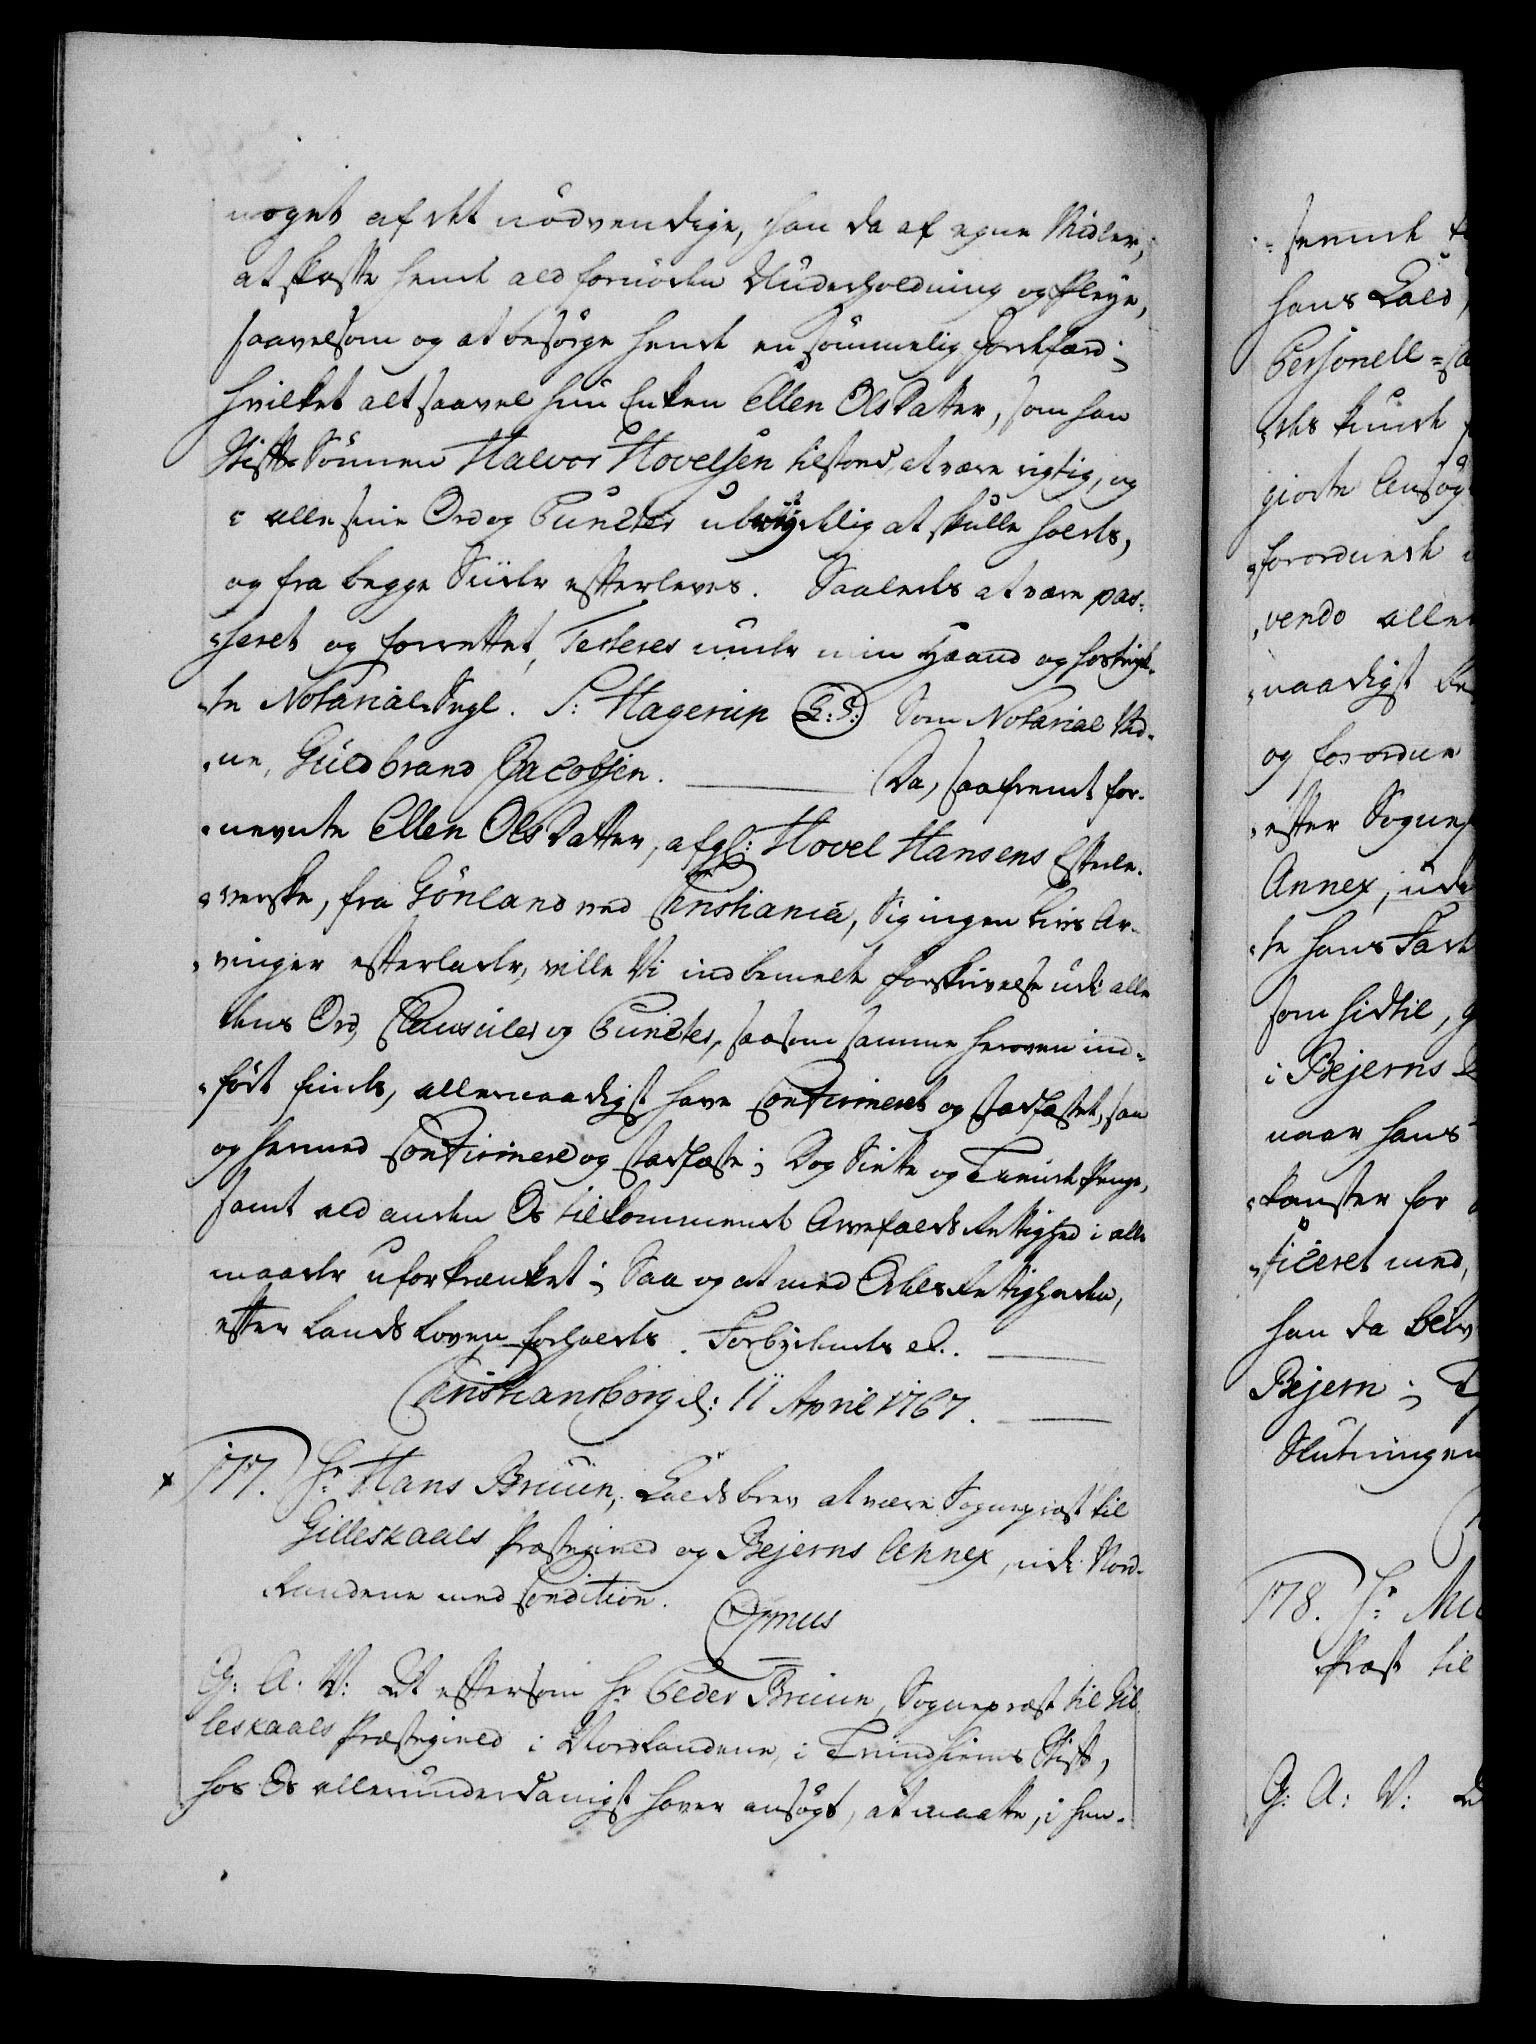 noget af det nödvendige, han da af egne Midler,
at skaffe hende ald fornöden Underholdning og Pleye,
saavelsom og at besörge hende en sömmelig Jordefærd;
hvilket alt saavel hun Enken Ellen Olsdatter, som han
Stiff-Sönnen Halvor Hovelsen tilstoed at være rigtig, og
i alle sine Ord og Puncter ubrydelig at skulle holdes,
og fra begge Siider efterleves. Saaledes at være pas-
seret og forrettet, Testeres under min Haand og hostryk-
te Notarial Segl. S: Hagerup (L:S:) Som Notarial Vid-
ne, Guldbrand Jacobsen. Da, saafremt for-
nevnte Ellen Olsdatter, afgl: Hovel Hansens Efterle-
verske, fra Grönland ved Christiania, Sig ingen Livs Ar-
vinger efterlader, ville Vi indbemelte Forskrivelse udi alle
dens Ord, Clausuler og Puncter, saasom samme heroven ind-
fört findes, allernaadigst have Confirmeret og stadfæstet, saa
og hermed Confirmere og stadfæste; Dog Siette og Tiende Penge,
samt ald anden Os tilkommende Arvefalds Rettighed i alle
maader uforkrænket; Saa og at med Odels Rettigheden,
efter Lands Loven forholdes. Forbydendes etc.
Christiansborg d: 11 April 1767.
177. Hr Hans Bruun, Kaldsbrev at være Sognepræst til
Gilleskaals Præstegield og Bejerns Annex, udi Nord-
landene med Condition.
G: A: V: At eftersom Hr Peder Bruun, Sognepræst til Gil-
leskaals Præstegield i Nordlandene, i Trundhiems Stift,
hos Os allerunderdanigst haver ansögt, at maatte, i hen-
-seende
hans Kald,
Personell
des kunde
giorte Ansög
forordnede
vendo aller
naadigst
og forordne
efter Sogne
Annex, ude
te hans
som hidtil,
i Bejerns
naar hans
kanster for
ficeret med,
han da
Bejern;
Slutningen
178. Hr
Præst til
G: A: V: